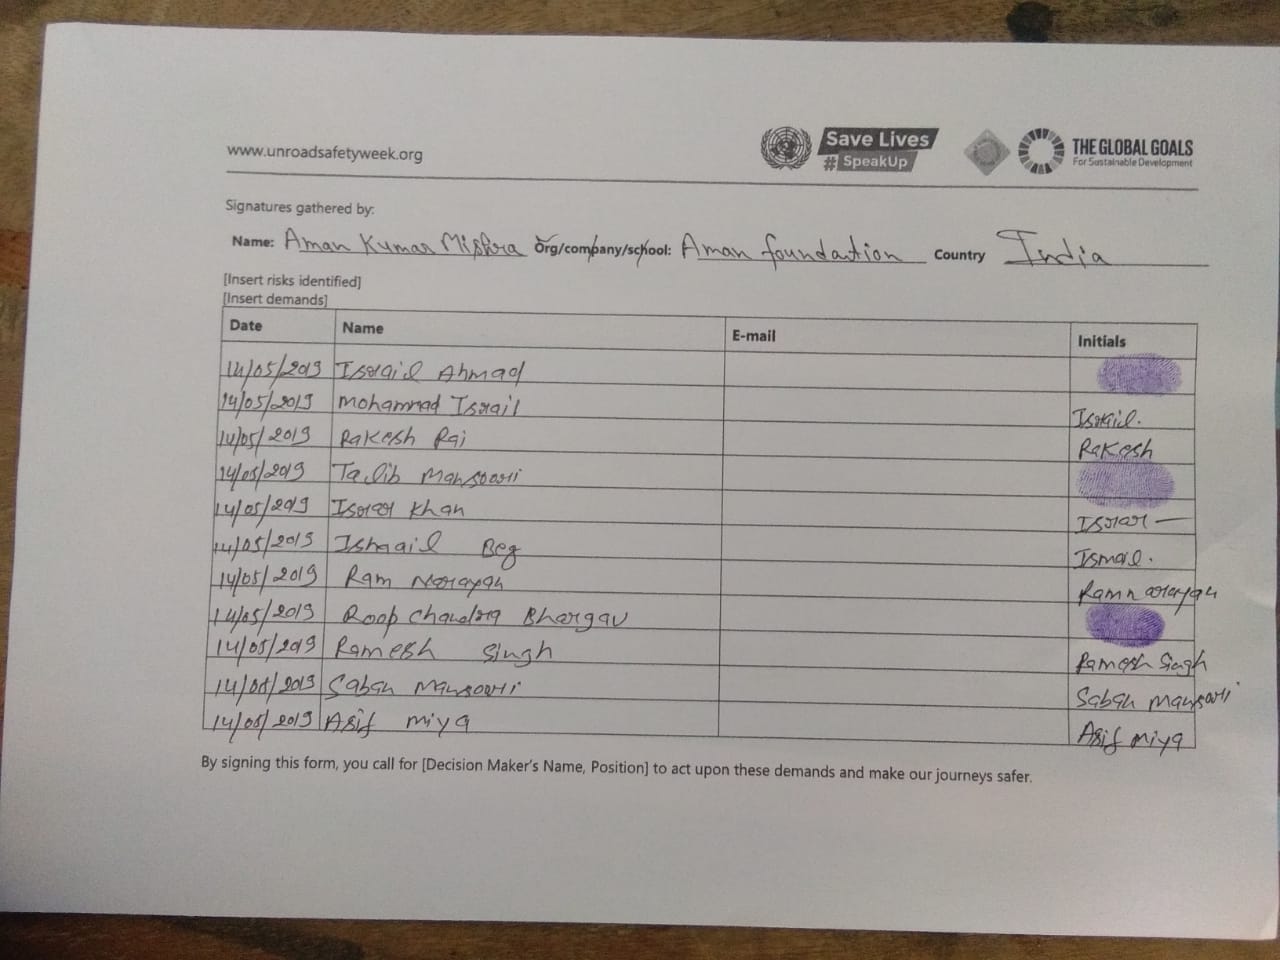 www.unroadsafetyweek.org
Save Lives
# SpeakUp
THE GLOBAL GOALS
For Sustainable Development
Signatures gathered by:
Name: Aman Kumar Mishra Org/company/school: Aman foundation Country India
[Insert risks identified]
[Insert demands]
Date Name E-mail Initials
14/05/2019 Israil Ahmad
14/05/2019 Mohammad Israil Israil.
14/05/2019 Rakesh Rai Rakesh
14/05/2019 Talib Mansoori
14/05/2019 Israr Khan Israr
14/05/2019 Ishmail Beg Ismail.
14/05/2019 Ram Narayan Ramnarayan
14/05/2019 Roop Chandra Bhargav
14/05/2019 Ramesh Singh Ramesh Singh
14/05/2019 Saban Mansoori Saban Mansoori
14/05/2019 Asif miya Asif miya
By signing this form, you call for [Decision Maker's Name, Position] to act upon these demands and make our journeys safer.